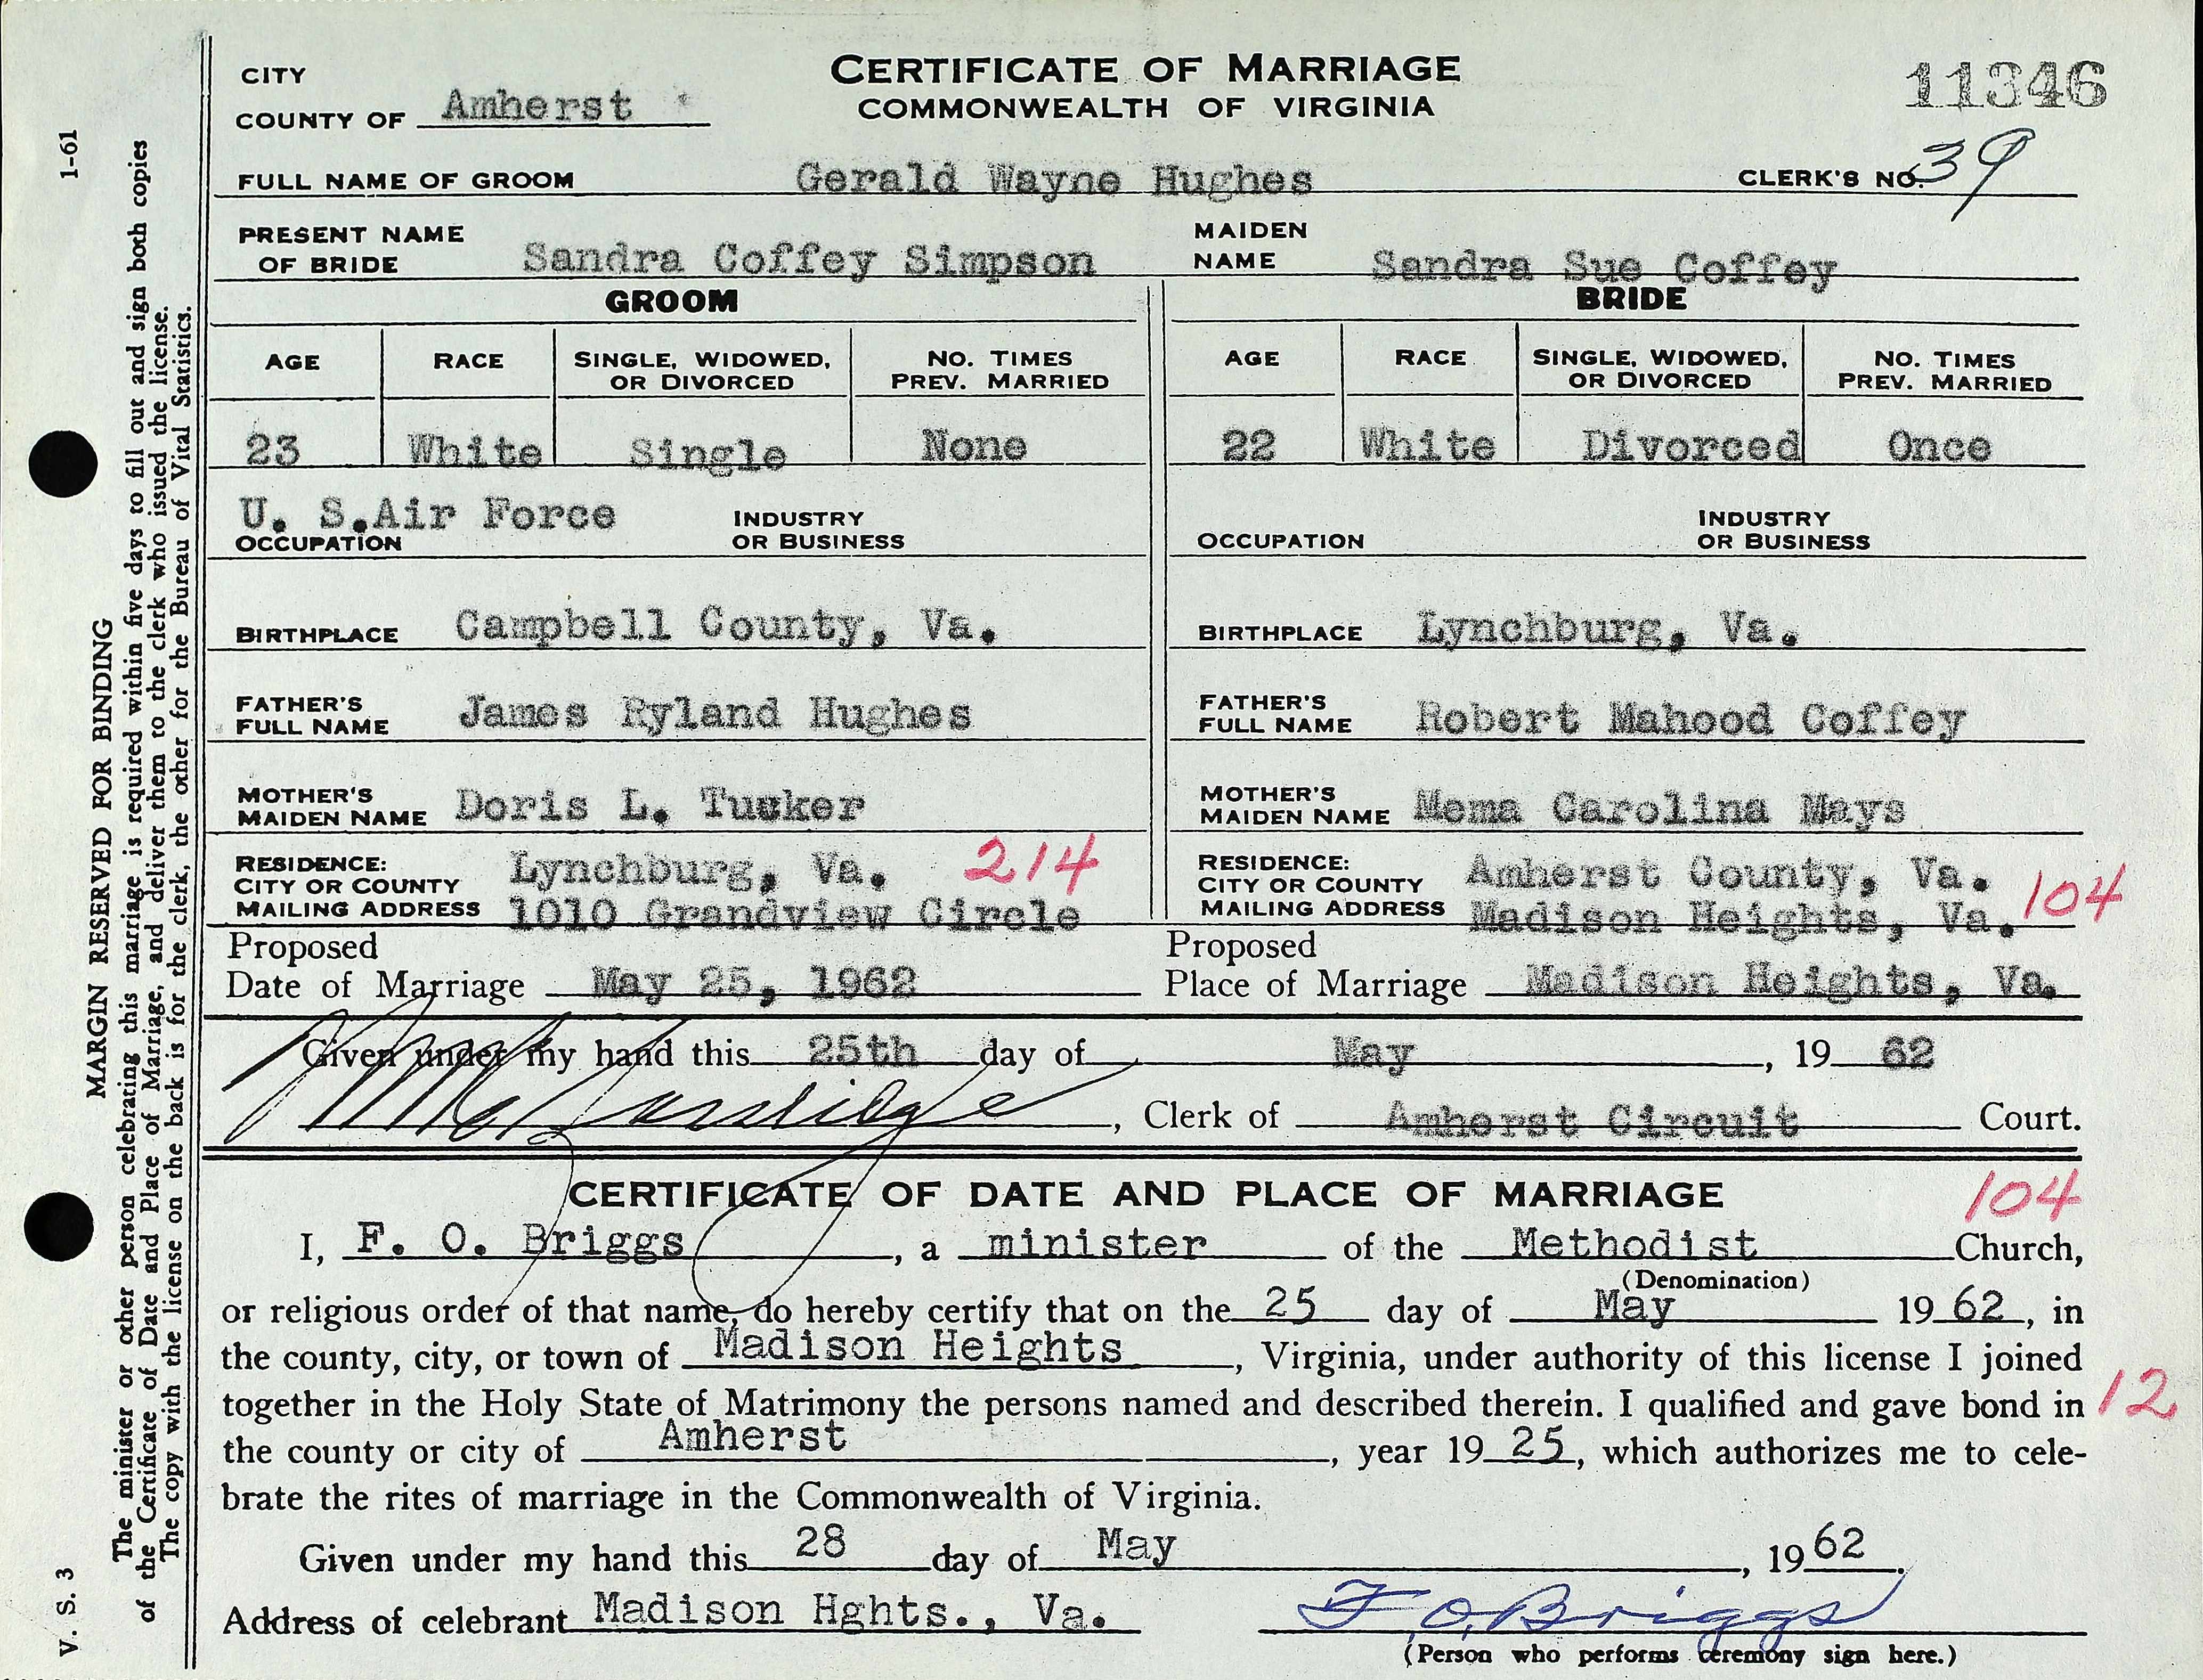 CITY
COUNTY OF Amherst
CERTIFICATE OF MARRIAGE
COMMONWEALTH OF VIRGINIA
11346
FULL NAME OF GROOM Gerald Wayne Hughes CLERK'S NO. 39
PRESENT NAME OF BRIDE Sandra Coffey Simpson MAIDEN NAME Sandra Sue Coffey
GROOM BRIDE
AGE RACE SINGLE, WIDOWED, OR DIVORCED NO. TIMES PREV. MARRIED AGE RACE SINGLE, WIDOWED, OR DIVORCED NO. TIMES PREV. MARRIED
23 White Single None 22 White Divorced Once
U. S.Air Force
OCCUPATION INDUSTRY OR BUSINESS OCCUPATION INDUSTRY OR BUSINESS
BIRTHPLACE Campbell County, Va. BIRTHPLACE Lynchburg, Va.
FATHER'S FULL NAME James Ryland Hughes FATHER'S FULL NAME Robert Mahood Coffey
MOTHER'S MAIDEN NAME Doris L. Tucker MOTHER'S MAIDEN NAME Mema Carolina Mays
RESIDENCE: CITY OR COUNTY Lynchburg, Va. 214 RESIDENCE: CITY OR COUNTY Amherst County, Va. 104
MAILING ADDRESS 1010 Grandview Circle MAILING ADDRESS Madison Heights, Va.
Proposed Date of Marriage May 25, 1962 Proposed Place of Marriage Madison Heights, Va.
Given under my hand this 25th day of May, 19 62
, Clerk of Amherst Circuit Court.
CERTIFICATE OF DATE AND PLACE OF MARRIAGE 104
I, F. O. Briggs, a minister of the Methodist Church,
(Denomination)
or religious order of that name, do hereby certify that on the 25 day of May 19 62, in
the county, city, or town of Madison Heights, Virginia, under authority of this license I joined
together in the Holy State of Matrimony the persons named and described therein. I qualified and gave bond in 12
the county or city of Amherst, year 19 25, which authorizes me to cele-
brate the rites of marriage in the Commonwealth of Virginia.
Given under my hand this 28 day of May, 19 62.
Address of celebrant Madison Hghts., Va. F. O. Briggs
(Person who performs ceremony sign here.)
V. S. 3 1-61
MARGIN RESERVED FOR BINDING
The minister or other person celebrating this marriage is required within five days to fill out and sign both copies
of the Certificate of Date and Place of Marriage, and deliver them to the clerk who issued the license.
The copy with the license on the back is for the clerk, the other for the Bureau of Vital Statistics.